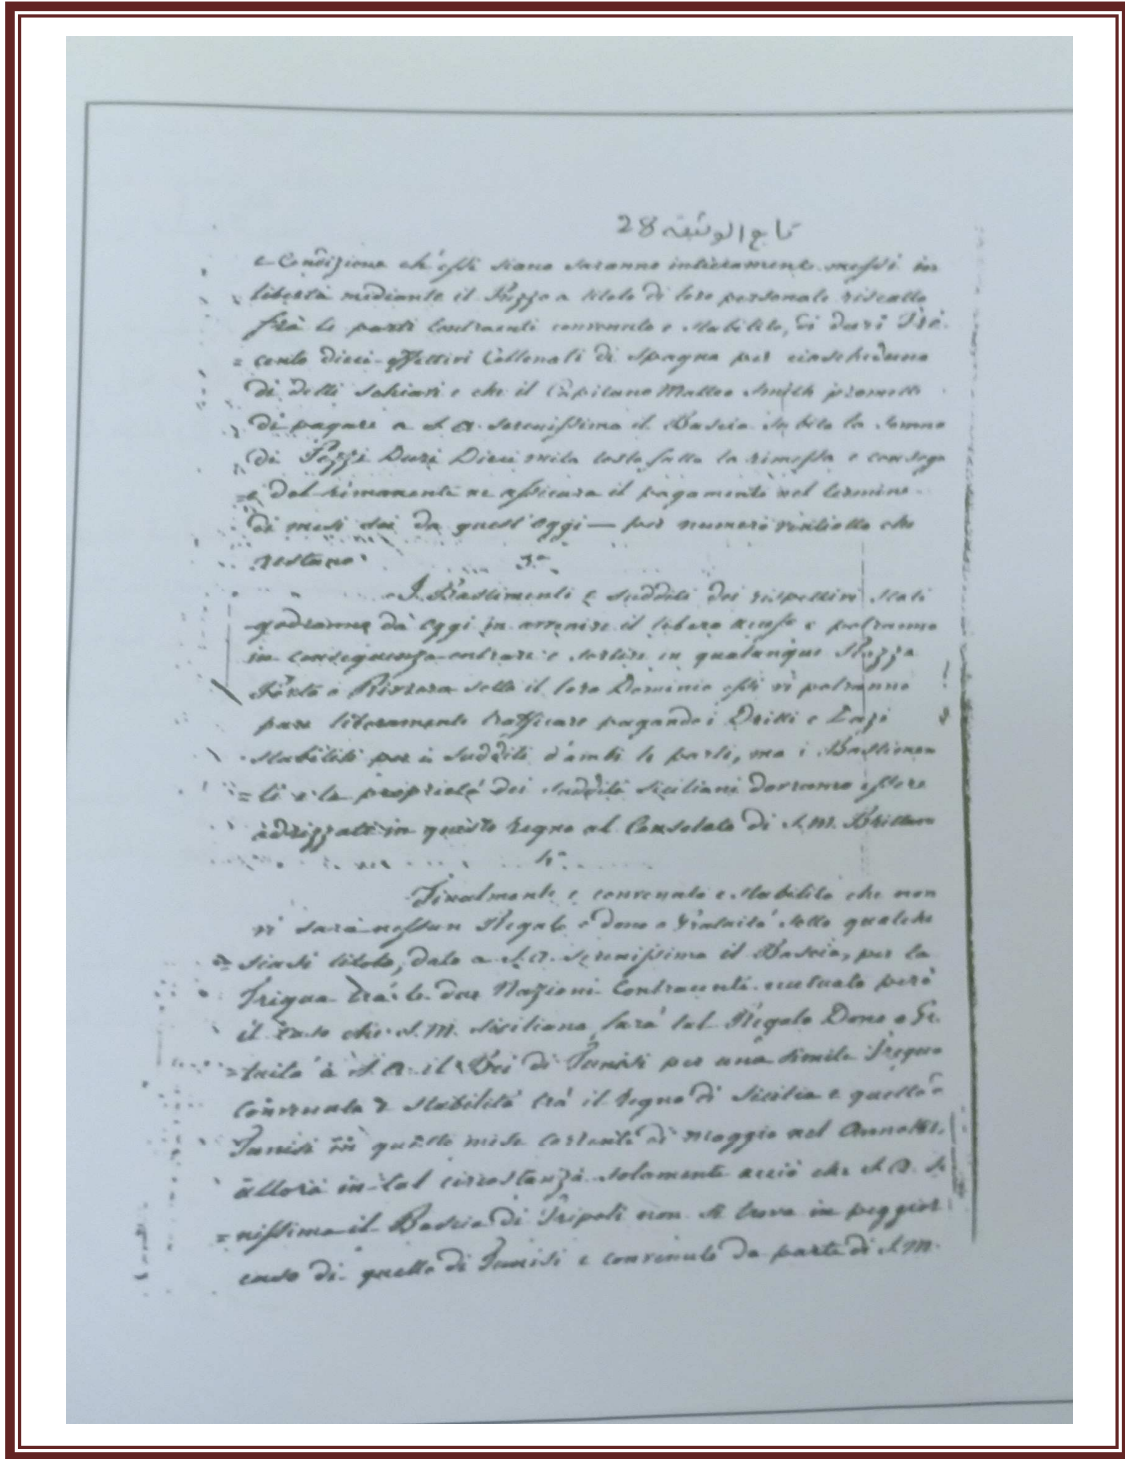 تابع الوثيقة 28
e Condizione ch'essi siano saranno intieramente messi in
libertà mediante il Prezzo a titolo di loro personale riscatto
frà le parti Contraenti convenuto e stabilito, di duri Tre
= cento dieci effettivi Collonati di Spagna per ciascheduno
di detti schiavi e che il Capitano Matteo Smith promette
di pagare a S. A. Serenissima il Bascia subito la somma
di Pezzi Duri Dieci mila tosto fatta la rimessa e conseg
= a del rimanente ne assicura il pagamento nel termine
di mesi sei da quest'oggi — per numero ventiotto che
restano
3°
I Bastimenti e sudditi dei rispettivi stati
godranno da oggi in avvenire il libero e potranno
in conseguenza entrare e sortire in qualunque Piazza
Porto o Riviera sotto il loro Dominio essi vi potranno
pure liberamente trafficare pagando i Dritti e Dazi
stabiliti per i sudditi d'ambi le parti, ma i Bastimen
= ti e le proprietà dei sudditi Siciliani dovranno essere
adrizzati in questo regno al Consolato di S. M. Brittan
4°
Finalmente è convenuto e stabilito che non
vi sarà nessun Regalo o dono o Gratuità sotto qualche
= siasi titolo, dato a S. A. Serenissima il Bascia, per la
Tregua trà le due Nazioni Contraenti però
il caso che S. M. Siciliana farà tal Regalo Dono o Gr
= tuità à S. A. il Bei di Tunisi per una simile Tregua
convenuta e stabilità trà il regno di Sicilia e quello
Tunisi in questo mese corrente di maggio nel Anno
allora in tal circostanza solamente acciò che S. A. Se
= nissima il Bascia di Tripoli non si trova in peggior
caso di quello di Tunisi è convenuto da parte di S. M.